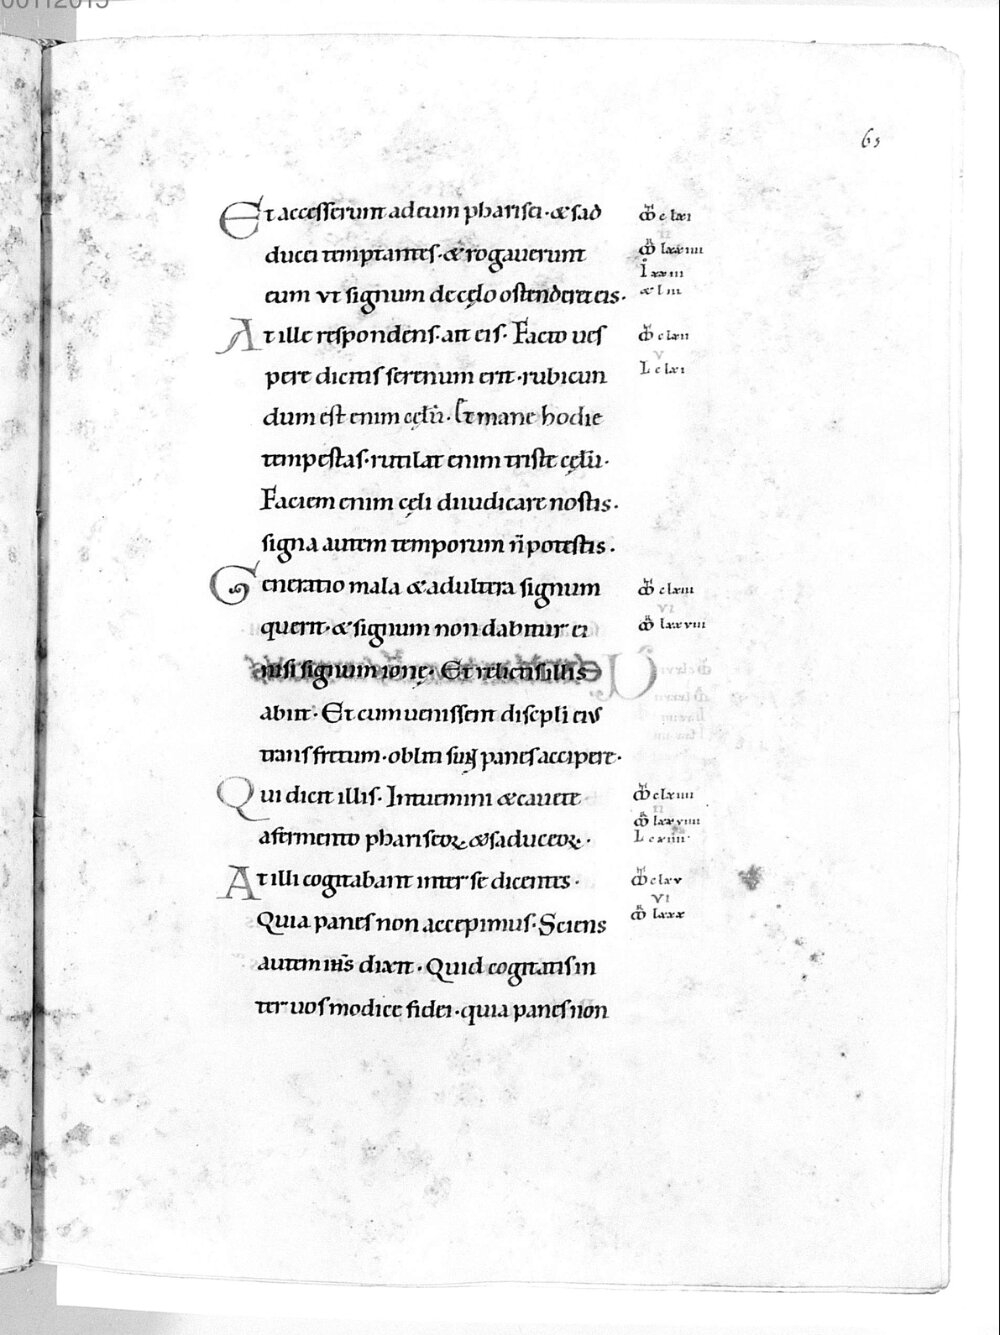 65
Et accesserunt ad eum pharisei · & sad
ducei temptantes · & rogauerunt
eum vt signum de cęlo ostenderet eis ·
At ille respondens · ait eis · Facto ues
pere dicitis serenum erit · rubicun
dum est enim cęlū · Et mane hodie
tempestas · rutilat enim triste cęlū ·
Faciem enim cęli diiudicare nostis ·
signa autem temporum n̄ potestis ·
Generatio mala & adultera signum
querit · & signum non dabitur ei
nisi signum ionę · Et relictis illis
abiit · Et cum uenissent discpli eius
trans fretum · obliti sunt panes accipere ·
Qui dicit illis · Intuemini & cauete
a fermento phariseoꝝ & saduceoꝝ ·
At illi cogitabant inter se dicentes ·
Quia panes non accepimus · Sciens
autem ih̄s dixit · Quid cogitatis in
ter uos modice fidei · quia panes non
m̄ clxi
m̄ clxii
L clxi
m̄ clxiii
VI
lxxviii
m̄ clxiiii
L cxiiii
m̄ clxv
VI
lxxx